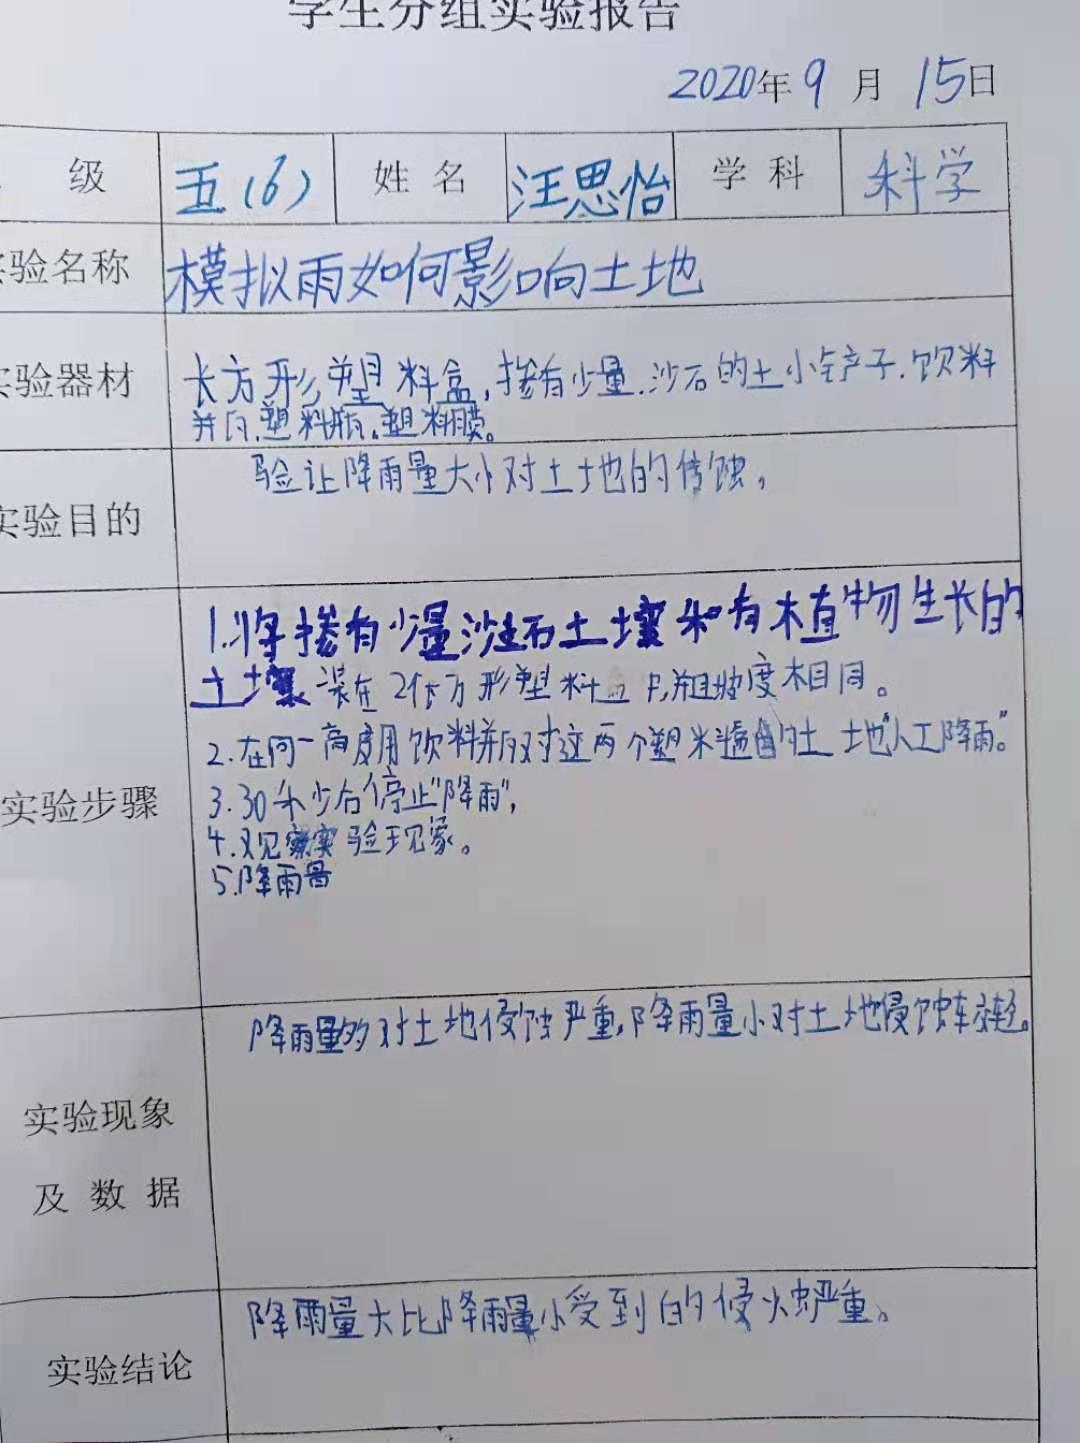 学生分组实验报告
2020年9月15日
级 五(6) 姓名 汪思怡 学科 科学
实验名称 模拟雨如何影响土地
实验器材 长方形塑料盒,掺有少量.沙石的土小铲子.饮料
瓶.塑料瓶.塑料膜。
实验目的 验让降雨量大小对土土地的侵蚀,
实验步骤
1.将掺有少量沙石土壤和有植物生长的
土壤装在2个长方形塑料盒中,并且坡度相同。
2.在同一高度用饮料瓶对这两个塑料盒的土土地"人工降雨。"
3.30秒后停止"降雨",
4.观察实验现象。
5.降雨量
实验现象
及数据
降雨量多对土地侵蚀严重,降雨量小对土地侵蚀较轻。
实验结论 降雨量大比降雨量小受到的侵蚀严重。